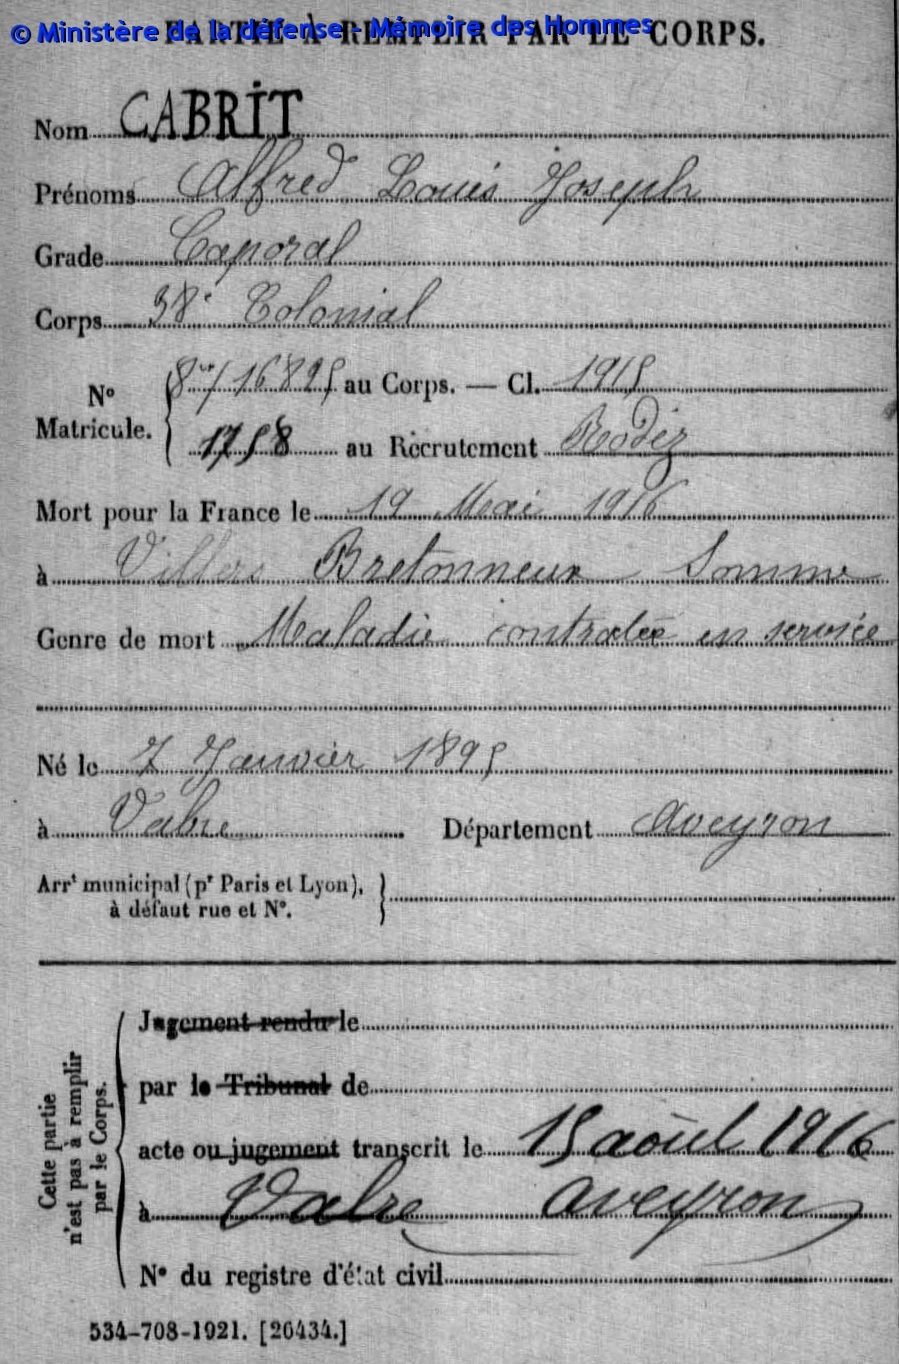 © Ministère de la défense - Mémoire des Hommes
PARTIE À REMPLIR PAR LE CORPS.
Nom CABRIT
Prénoms Alfred Louis Joseph
Grade Caporal
Corps 38e Colonial
No Matricule. { 16825 au Corps. — Cl. 1915
1758 au Recrutement Rodez
Mort pour la France le 19 Mai 1916
à Villers Bretonneux Somme
Genre de mort Maladie contractée en service
Né le 7 Janvier 1895
à Vabre Département Aveyron
Arrt municipal (pr Paris et Lyon), }
à défaut rue et No.
Cette partie n'est pas à remplir par le Corps.
Jugement rendu le
par le Tribunal de
acte ou jugement transcrit le 15 août 1916
à Vabre Aveyron
No du registre d'état civil
534-708-1921. [26434.]